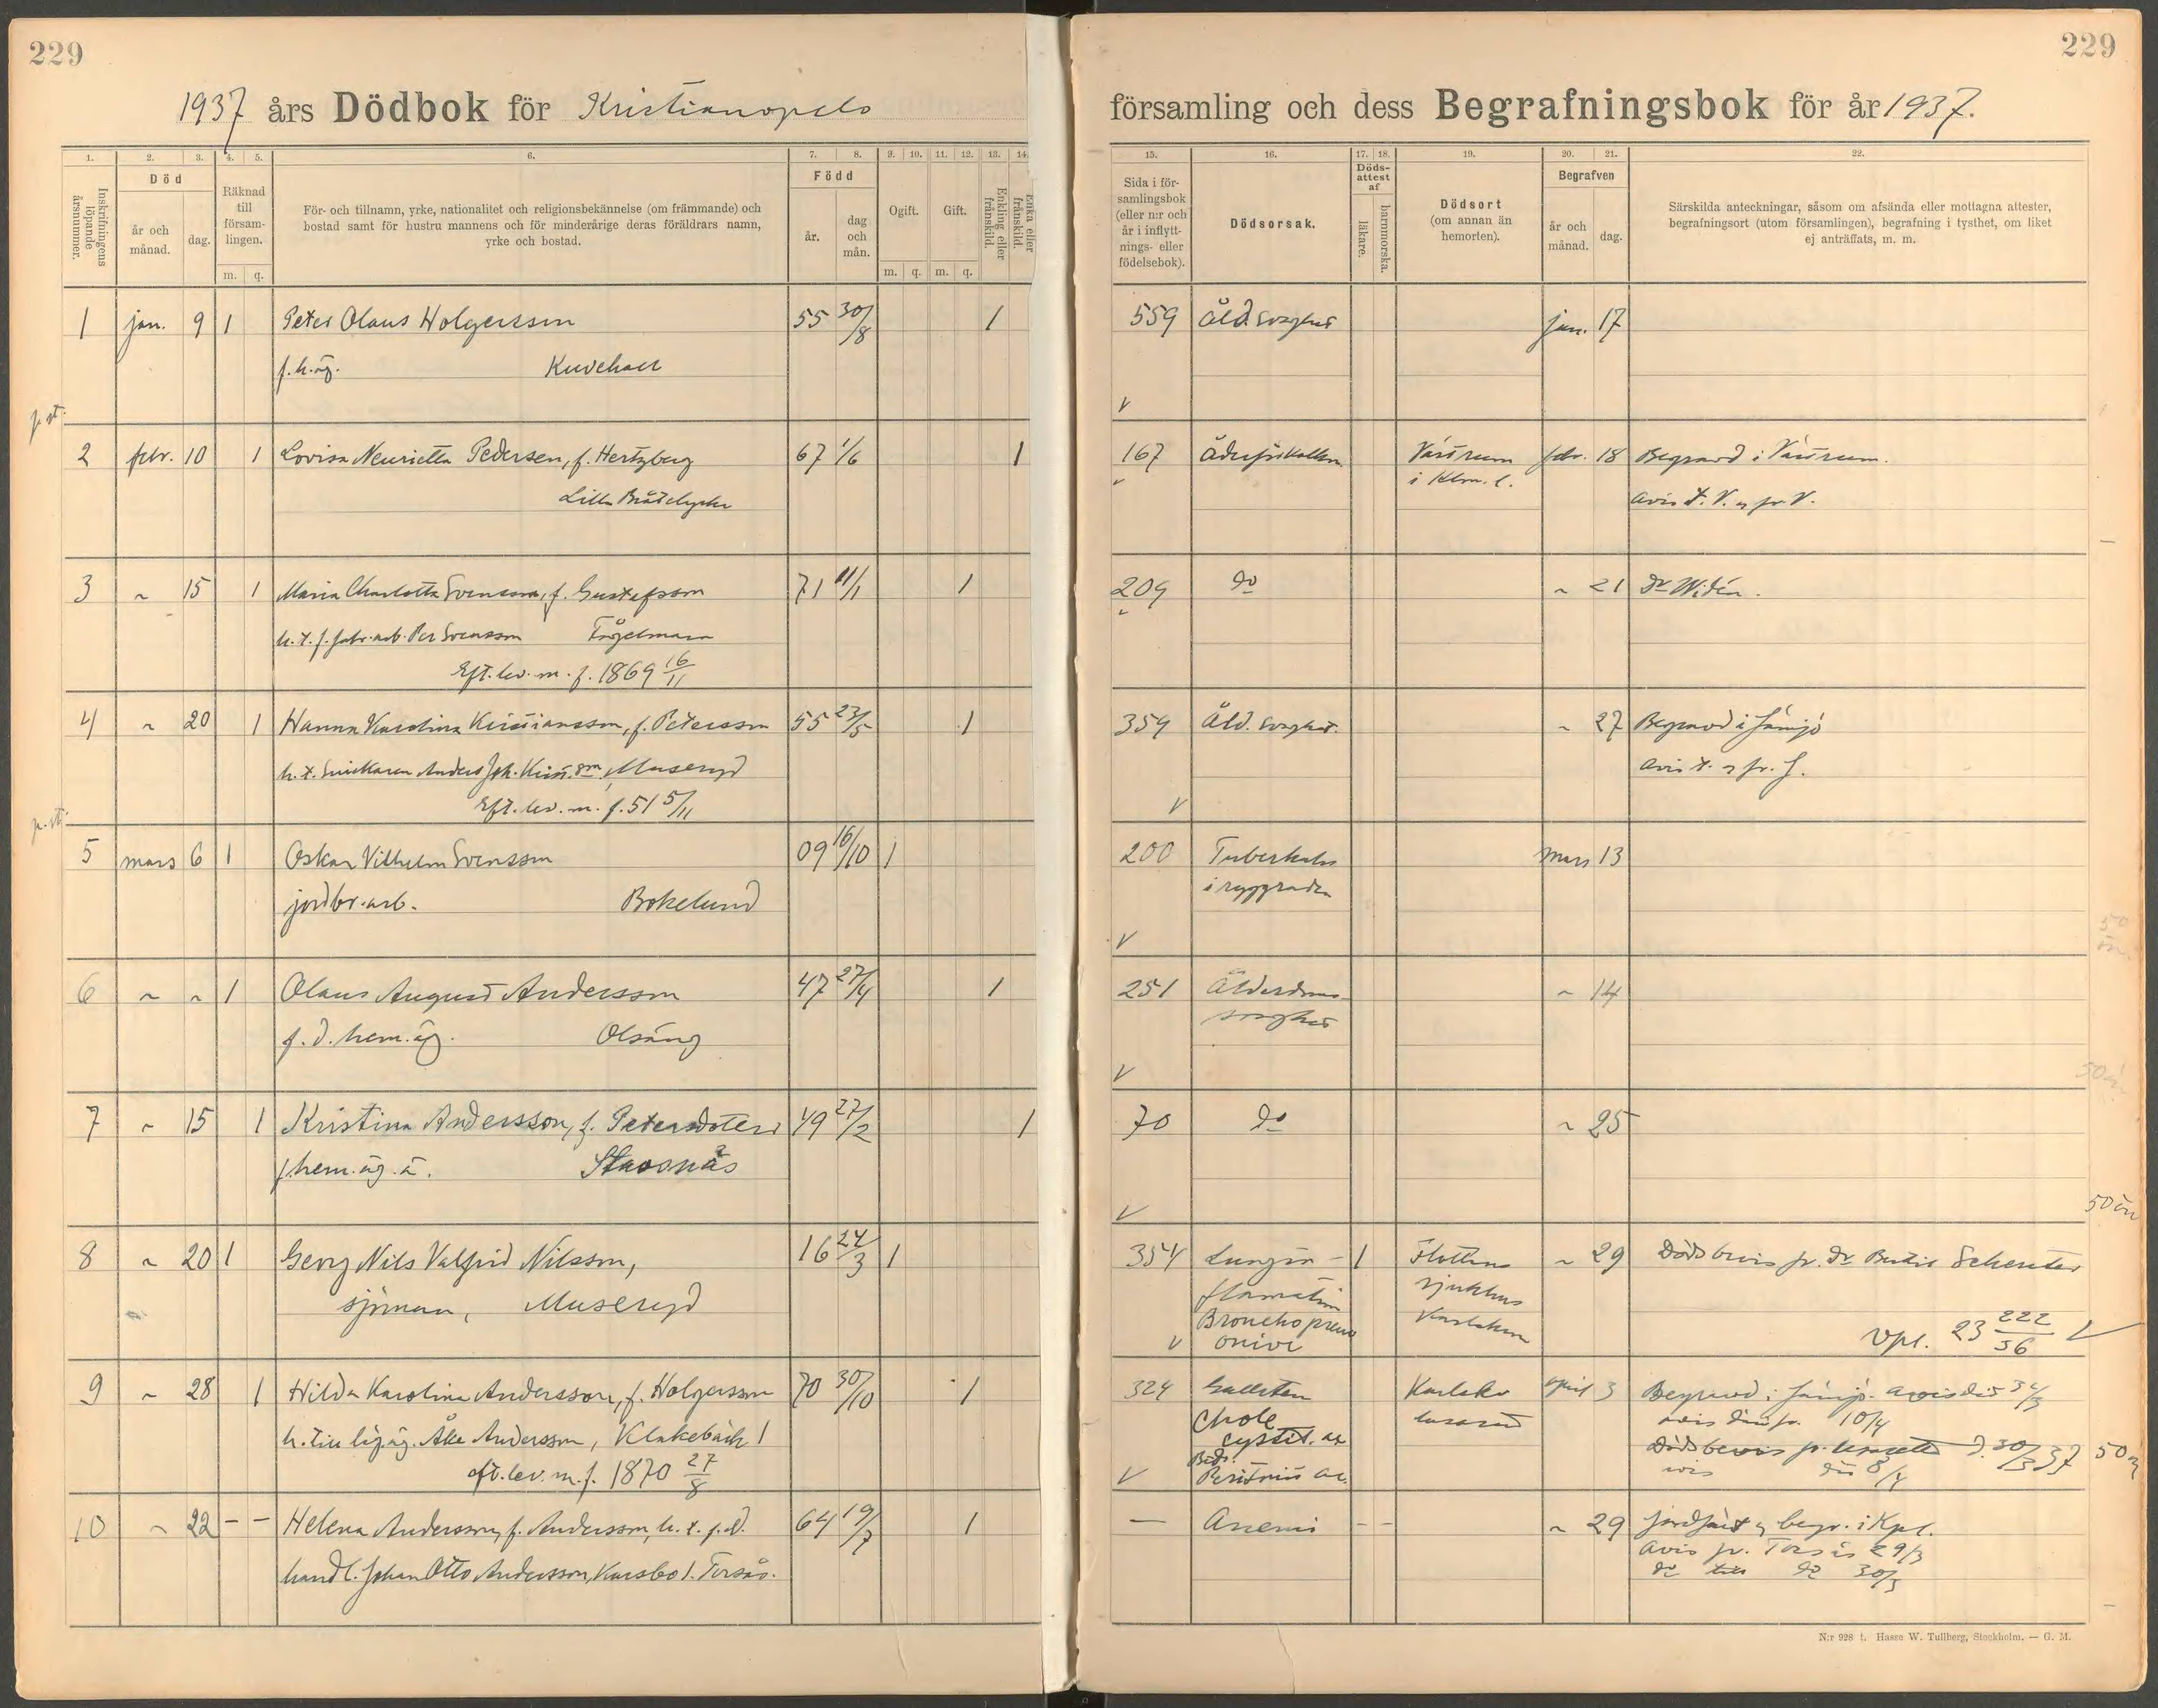 229
1937 års Dödbok för Kristianopels
1. 2. 3. 4. 5. 6. 7. 8. 9. 10. 11. 12. 13. 14
Inskrifningens löpande årsnummer.
Död
år och månad.
dag.
Räknad till församlingen.
m. q.
För- och tillnamn, yrke, nationalitet och religionsbekännelse (om främmande) och
bostad samt för hustru mannens och för minderårige deras föräldrars namn,
yrke och bostad.
Född
år.
dag och mån.
Ogift. Gift.
m. q. m. q.
Enkling eller frånskild.
Enka eller frånskild.
1 jan. 9 1 Peter Olaus Holgersson 55 30/8 1
f.h.äg.
p.st.
2 febr. 10 1 Lovisa Henrietta Pedersen, f. Hertzberg 67 1/6 1
Lilla Brödelycke
3 ~ 15 1 Maria Charlotta Svensson, f. Gustafsson 71 11/1 1
h.t.f. fabr.arb. Per Svensson Fågelmara
Eft.lev.m.f. 1869 16/11
4 ~ 20 1 Hanna Karolina Kristiansson, f. Petersson 55 23/5 1
h.t. Snickaren Anders Joh. Krist.son, Museryd
Eft.lev.m. f. 51 5/11
p.st.
5 mars 6 1 Oskar Vilhelm Svensson 09 16/10 1
jordbr.arb. Bokelund
6 ~ ~ 1 Olaus August Andersson 47 27/4 1
f.d. hem.äg. Olsäng
7 ~ 15 1 Kristina Andersson, f. Petersdotter 49 27/2 1
f.hem.äg.ä. Stavsnäs
8 ~ 20 1 Georg Nils Valfrid Nilsson, 16 24/3 1
sjöman, Museryd
9 ~ 28 1 Hilda Karolina Andersson, f. Holgersson 70 30/10 1
h. till läg.äg. Åke Andersson, Klakebäck 1
eft.lev.m.f. 1870 27/8
10 ~ 22 - - Helena Andersson, f. Andersson, h.t. f.d. 64 19/7 1
handl. Johan Otto Andersson, Karsbo 1. Torsås.
229
församling och dess Begrafningsbok för år 1937.
15. 16. 17. 18. 19. 20. 21. 22.
Sida i församlingsbok (eller n:r och år i inflyttnings- eller födelsebok).
Dödsorsak.
Dödsattest af
läkare.
barnmorska.
Dödsort
(om annan än hemorten).
Begrafven
år och månad.
dag.
Särskilda anteckningar, såsom om afsända eller mottagna attester,
begrafningsort (utom församlingen), begrafning i tysthet, om liket
ej anträffats, m. m.
559 Åld. svaghet jan. 17
167 Åderförkalkn. Vässrum febr. 18 Begravd i Vässrum.
i Klm. l. Avis t. V. o fr V.
209 do ~ 21 Dr Widén.
359 Åld. svaghet. ~ 27 Begravd i Jämjö
Avis t. o fr. J.
200 Tuberkulos mars 13
i ryggraden
251 Ålderdoms- ~ 14
svaghet
70 do ~ 25
50 ön
354 Lungin- 1 Flottans ~ 29 Dödsbevis fr. Dr Bertil Schentes
flamation sjukhus
Bronchopneu Karlskrona
onier Vpl. 23 222/36
324 Gallsten Karlskr. april 3 Begravd i Jämjö. Avis dit 31/3
Chole lasarett avis därifr. 10/4
cystit. ac
Peritonit ac. Dödsbevis fr. lasarett d. 30/3 37 50
avis dit 8/4
— Anemi - - ~ 29 Jordfäst o begr. i Kpl.
Avis fr. Torsås 29/3
do till do 30/3
N:r 928 t. Hasse W. Tullberg, Stockholm. — G. M.